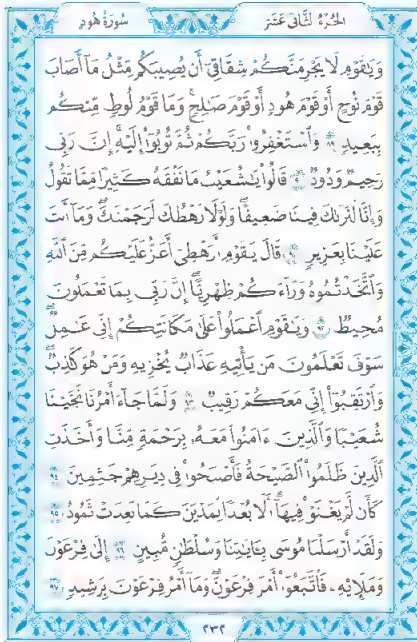 الجزء الثاني عشر
سورة هود
وَيَٰقَوْمِ لَا يَجْرِمَنَّكُمْ شِقَاقِىٓ أَن يُصِيبَكُم مِّثْلُ مَآ أَصَابَ
قَوْمَ نُوحٍ أَوْ قَوْمَ هُودٍ أَوْ قَوْمَ صَٰلِحٍ ۚ وَمَا قَوْمُ لُوطٍ مِّنكُم
بِبَعِيدٍ ٨٩ وَٱسْتَغْفِرُوا۟ رَبَّكُمْ ثُمَّ تُوبُوٓا۟ إِلَيْهِ ۚ إِنَّ رَبِّى
رَحِيمٌ وَدُودٌ ٩٠ قَالُوا۟ يَٰشُعَيْبُ مَا نَفْقَهُ كَثِيرًا مِّمَّا تَقُولُ
وَإِنَّا لَنَرَىٰكَ فِينَا ضَعِيفًا ۖ وَلَوْلَا رَهْطُكَ لَرَجَمْنَٰكَ ۖ وَمَآ أَنتَ
عَلَيْنَا بِعَزِيزٍ ٩١ قَالَ يَٰقَوْمِ أَرَهْطِىٓ أَعَزُّ عَلَيْكُم مِّنَ ٱللَّهِ
وَٱتَّخَذْتُمُوهُ وَرَآءَكُمْ ظِهْرِيًّا ۖ إِنَّ رَبِّى بِمَا تَعْمَلُونَ
مُحِيطٌ ٩٢ وَيَٰقَوْمِ ٱعْمَلُوا۟ عَلَىٰ مَكَانَتِكُمْ إِنِّى عَٰمِلٌ ۖ
سَوْفَ تَعْلَمُونَ مَن يَأْتِيهِ عَذَابٌ يُخْزِيهِ وَمَنْ هُوَ كَٰذِبٌ ۖ
وَٱرْتَقِبُوٓا۟ إِنِّى مَعَكُمْ رَقِيبٌ ٩٣ وَلَمَّا جَآءَ أَمْرُنَا نَجَّيْنَا
شُعَيْبًا وَٱلَّذِينَ ءَامَنُوا۟ مَعَهُۥ بِرَحْمَةٍ مِّنَّا وَأَخَذَتِ
ٱلَّذِينَ ظَلَمُوا۟ ٱلصَّيْحَةُ فَأَصْبَحُوا۟ فِى دِيَٰرِهِمْ جَٰثِمِينَ ٩٤
كَأَن لَّمْ يَغْنَوْا۟ فِيهَآ ۗ أَلَا بُعْدًا لِّمَدْيَنَ كَمَا بَعِدَتْ ثَمُودُ ٩٥
وَلَقَدْ أَرْسَلْنَا مُوسَىٰ بِـَٔايَٰتِنَا وَسُلْطَٰنٍ مُّبِينٍ ٩٦ إِلَىٰ فِرْعَوْنَ
وَمَلَإِي۟هِۦ فَٱتَّبَعُوٓا۟ أَمْرَ فِرْعَوْنَ ۖ وَمَآ أَمْرُ فِرْعَوْنَ بِرَشِيدٍ ٩٧
٢٣٢